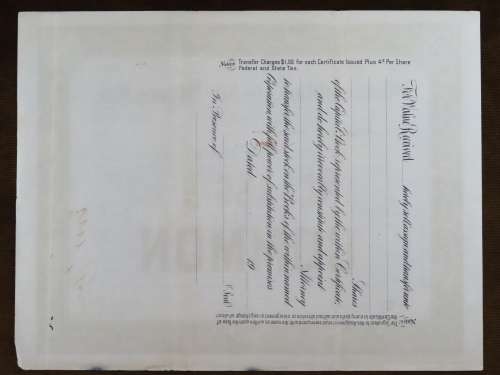 Notice
Transfer Charges $1.00 for each Certificate Issued Plus 4¢ Per Share
Federal and State Tax.
For Value Received hereby sell, assign and transfer unto
Shares
of the Capital Stock represented by the within Certificate,
and do hereby irrevocably constitute and appoint
Attorney
to transfer the said stock on the Books of the within named
Corporation with full power of substitution in the premises
Dated 19
(Seal)
In Presence of
Notice: The Signature to this Assignment must correspond with the name as written upon the face of
the Certificate in every particular without alteration or enlargement or any change whatever